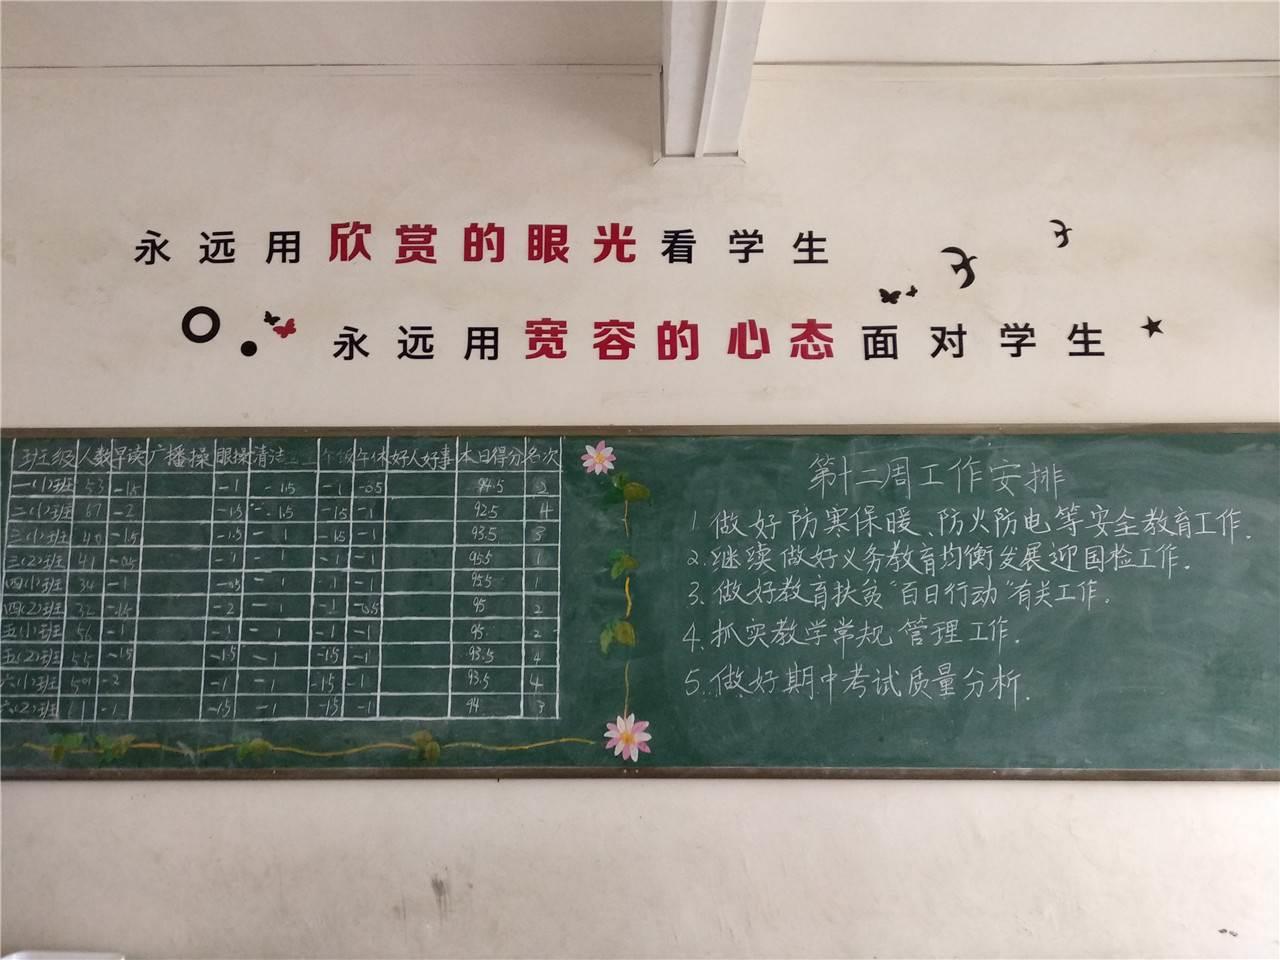 永远用欣赏的眼光看学生
永远用宽容的心态面对学生
班级 人数 早读 广播操 眼操 清洁 午饭 午休 好人好事 本日得分 名次
一(1)班 53 -1.5 -1 -1.5 -1 -0.5 94.5 2
二(1)班 67 -2 -1.5 -1.5 -1.5 -1 92.5 4
三(1)班 40 -1.5 -1.5 -1 -1.5 -1 93.5 3
三(2)班 41 -0.5 -1 -1 -1 -1 95.5 1
四(1)班 34 -1 -0.5 -1 -1 -1 95.5 1
四(2)班 32 -1.5 -2 -1 -1 -0.5 95 2
五(1)班 56 -1 -1 -1 -1 -1 95 2
五(2)班 55 -1.5 -1.5 -1 -1.5 -1 93.5 4
六(1)班 -2 -1 -1 -1.5 -1 93.5 4
六(2)班 -1 -1.5 -1 -1.5 -1 94 3
第十二周工作安排
1.做好防寒保暖、防火防电等安全教育工作.
2.继续做好义务教育均衡发展迎国检工作.
3.做好教育扶贫"百日行动"有关工作.
4.抓实教学常规管理工作.
5.做好期中考试质量分析.